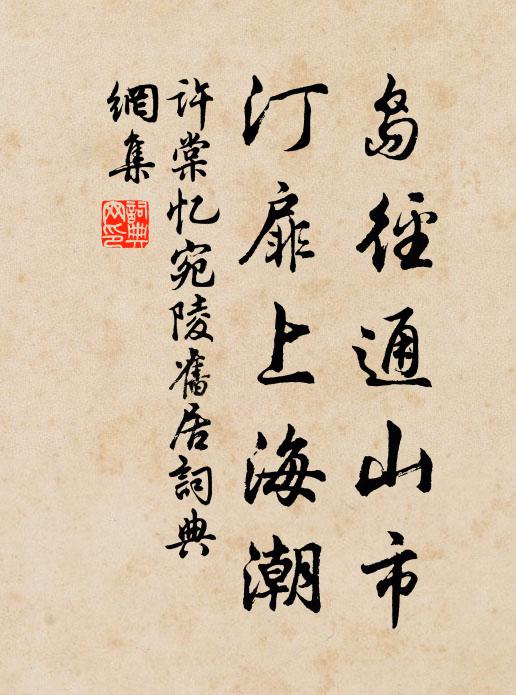 島徑通山市
汀扉上海潮
許棠忆宛陵舊居詞典
網集
詞典
网印